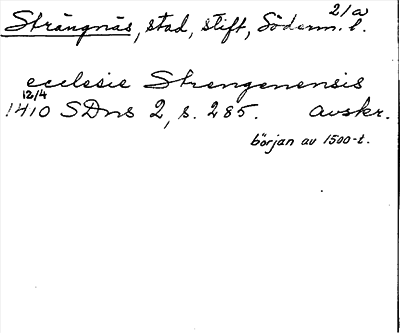 2/a
Strängnäs, stad, stift, Söderm. l.
ecclesie Strengenensis
12/4
1410 SDns 2, s. 285. Avskr.
början av 1500-t.